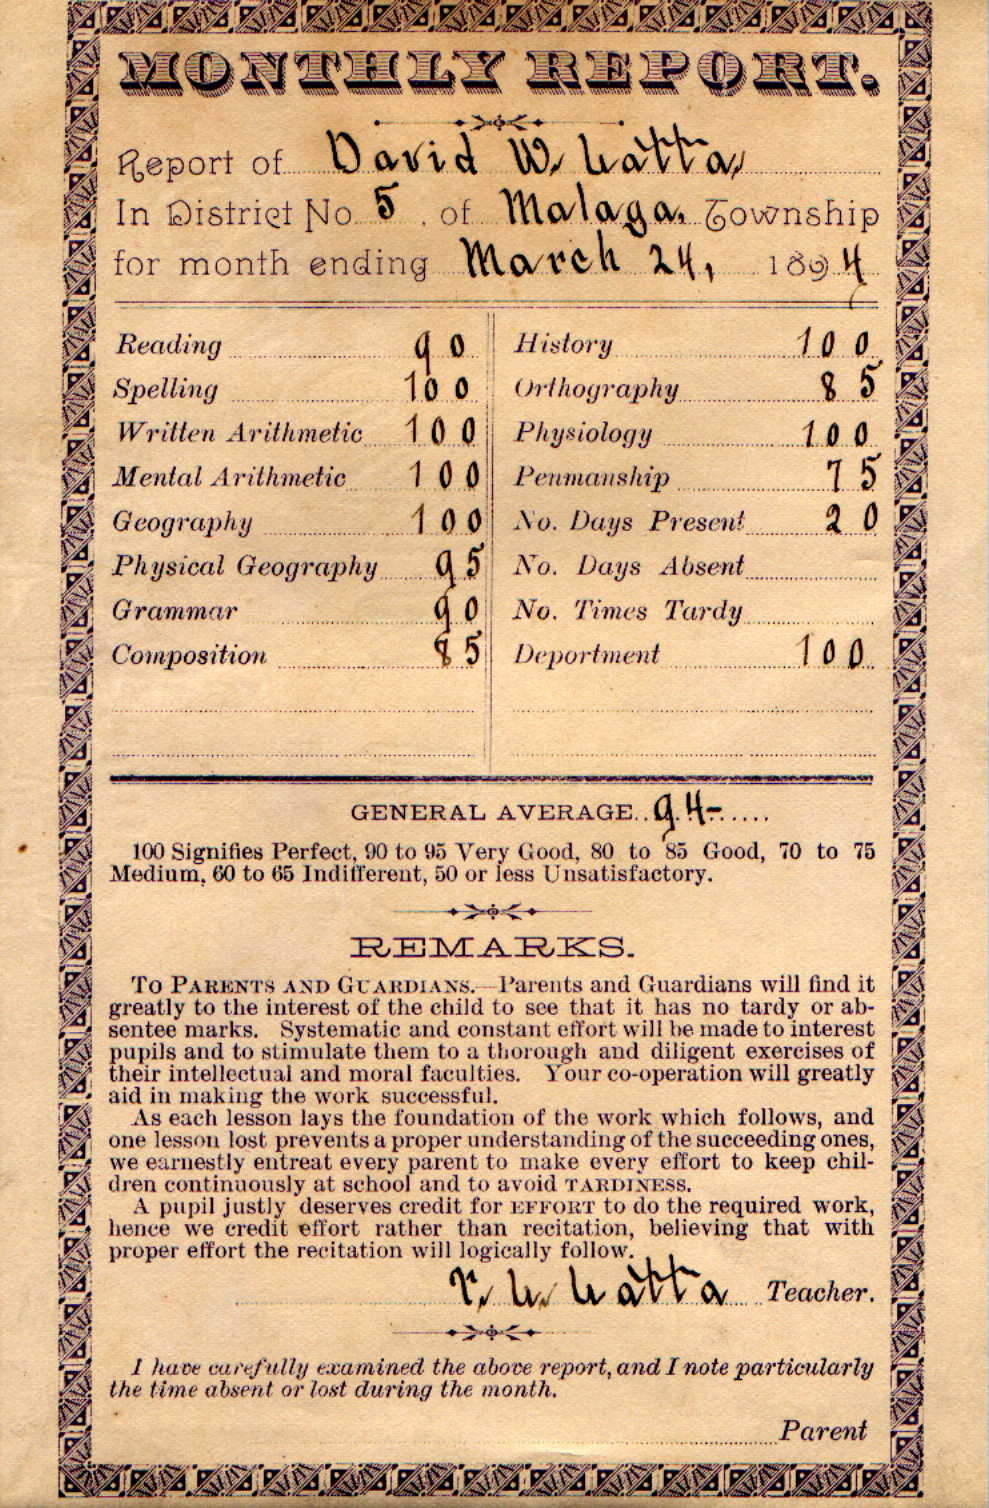 MONTHLY REPORT.
Report of David W. Watta,
In District No. 5. of Malaga, Township
for month ending March 24, 1894
Reading 90
Spelling 100
Written Arithmetic 100
Mental Arithmetic 100
Geography 100
Physical Geography 95
Grammar 90
Composition 85
History 100
Orthography 85
Physiology 100
Penmanship 75
No. Days Present 20
No. Days Absent
No. Times Tardy
Deportment 100
GENERAL AVERAGE.. 94-......
100 Signifies Perfect, 90 to 95 Very Good, 80 to 85 Good, 70 to 75
Medium, 60 to 65 Indifferent, 50 or less Unsatisfactory.
REMARKS.
TO PARENTS AND GUARDIANS.—Parents and Guardians will find it
greatly to the interest of the child to see that it has no tardy or ab-
sentee marks. Systematic and constant effort will be made to interest
pupils and to stimulate them to a thorough and diligent exercises of
their intellectual and moral faculties. Your co-operation will greatly
aid in making the work successful.
As each lesson lays the foundation of the work which follows, and
one lesson lost prevents a proper understanding of the succeeding ones,
we earnestly entreat every parent to make every effort to keep chil-
dren continuously at school and to avoid TARDINESS.
A pupil justly deserves credit for EFFORT to do the required work,
hence we credit effort rather than recitation, believing that with
proper effort the recitation will logically follow.
Watta Teacher.
I have carefully examined the above report, and I note particularly
the time absent or lost during the month.
Parent